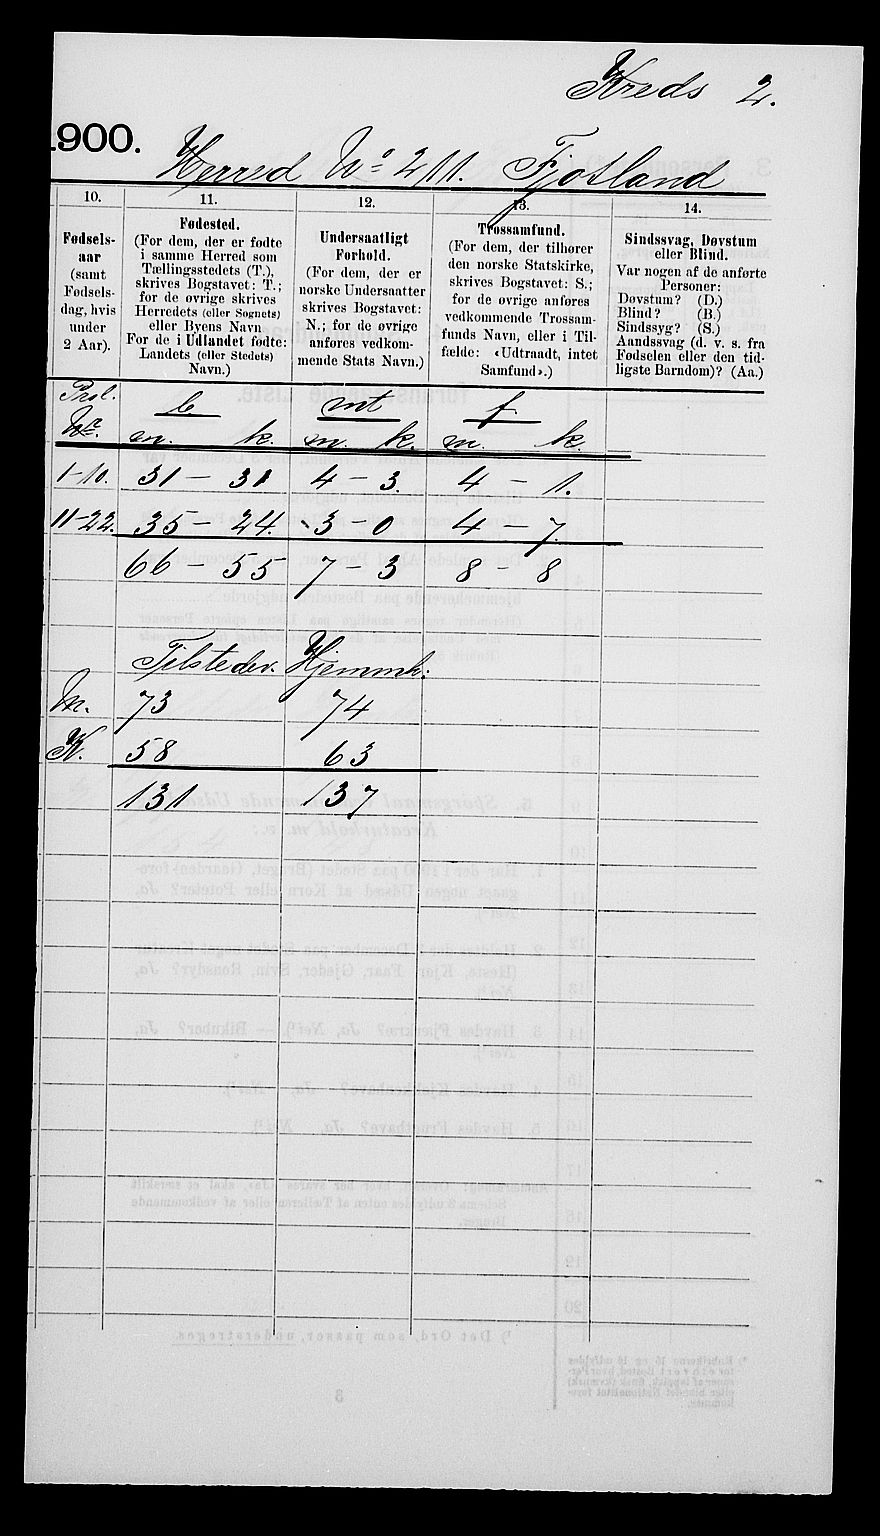 Kreds 2.
1900.
Herred No 211. Fjotland
10.
Fødsels-
aar
(samt
Fødsels-
dag, hvis
under
2 Aar).
11.
Fødested.
(For dem, der er fødte
i samme Herred som
Tællingsstedets (T.),
skrives Bogstavet: T.;
for de øvrige skrives
Herredets (eller Sognets)
eller Byens Navn
For de i Udlandet fødte:
Landets (eller Stedets)
Navn.)
12.
Undersaatligt
Forhold.
(For dem, der er
norske Undersaatter
skrives Bogstavet:
N.; for de øvrige
anføres vedkom-
mende Stats Navn.)
13.
Trossamfund.
(For dem, der tilhører
den norske Statskirke,
skrives Bogstavet: S.;
for de øvrige anføres
vedkommende Trossam-
funds Navn, eller i Til-
fælde: «Udtraadt, intet
Samfund».)
14.
Sindssvag, Døvstum
eller Blind.
Var nogen af de anførte
Personer:
Døvstum? (D.)
Blind? (B.)
Sindssyg? (S.)
Aandssvag (d. v. s. fra
Fødselen eller den tid-
ligste Barndom)? (Aa.)
b mt f
No. m. k. m. k. m. k.
1-10. 31 - 31 4 - 3. 4 - 1.
11-22. 35 - 24. 3 - 0 4 - 7.
66 - 55 7 - 3 8 - 8
Tilstedev. Hjemmh:
M. 73 74
K. 58 63
131 137